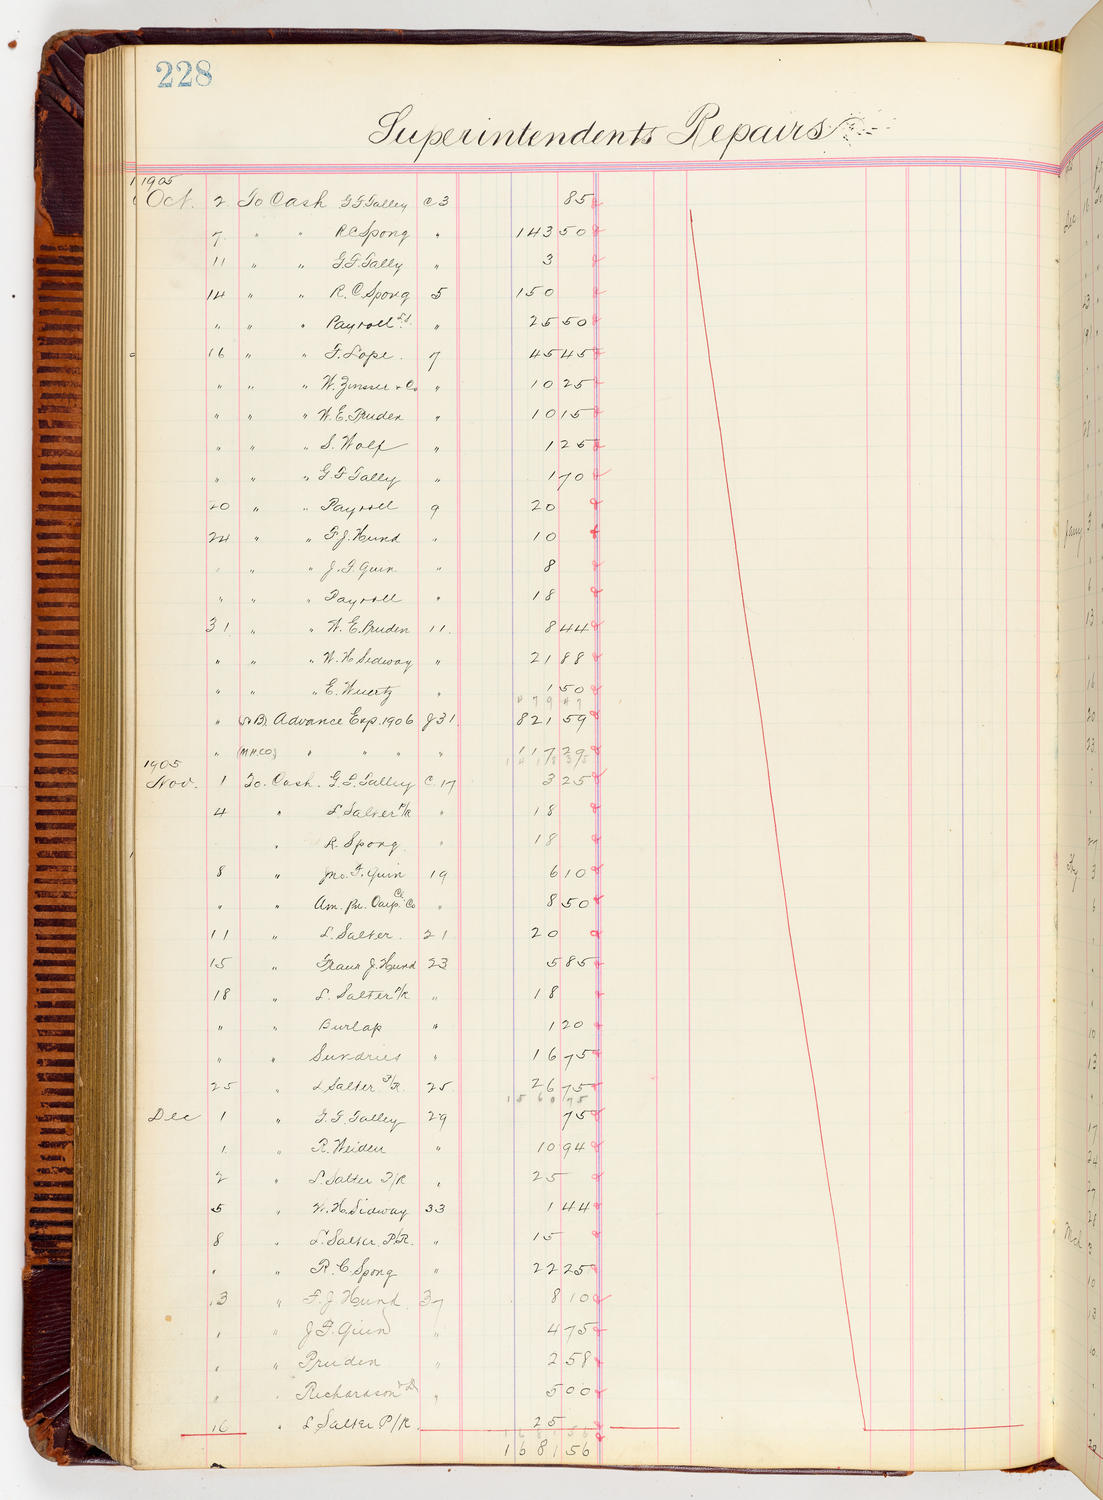 228
Superintendents Repairs
1905
Oct. 2 To Cash G F Talley C 3 85
7 " " R C Spong " 143 50
11 " " G. F. Tally " 3
14 " " R. C Spong 5 150
" " " Payroll " 25 50
16 " " F. Lope. 7 45 45
" " " W. Zinsser & Co " 10 25
" " " W. E. Pruden " 10 15
" " " S. Wolf " 1 25
" " " G F Tally " 1 70
20 " " Payroll 9 20
24 " " F. J. Hund " 10
" " " J. F. Quin " 8
" " " Payroll " 18
31 " " W. E. Pruden 11. 8 44
" " " W. H Sidway " 21 88
" " " E. Wuertz " 1 50
" Advance Exp. 1906 J 31 821 59
" (M.H.CO.) " " " " " 117 29
1905
Nov. 1 To Cash. G. F. Talley C. 17 3 25
4 " L. Salter P/R " 18
" R. Spong " 18
8 " Jno. F. Quin 19 6 10
" " Am. Co " 8 50
11 " L. Salter. 21 20
15 " J. Hund 23 5 85
18 " L. Salter P/R " 18
" " Burlap " 1 20
" " Sundries " 16 75
25 " L Salter P/R. 25 26 75
156 0 75
Dec 1 " G. F. Talley 29 75
1. " R. Weiden " 10 94
2 " L. Salter P/R " 25
5 " W. H. Sidway 33 1 44
8 " L. Salter P/R. " 15
" " R. C. Spong " 22 25
13 " F. J Hund 37 8 10
" " J F. Quin " 4 75
" " Pruden " 2 58
" " Richardson " 5 00
16 " L Salter P/R. 25
1681 56